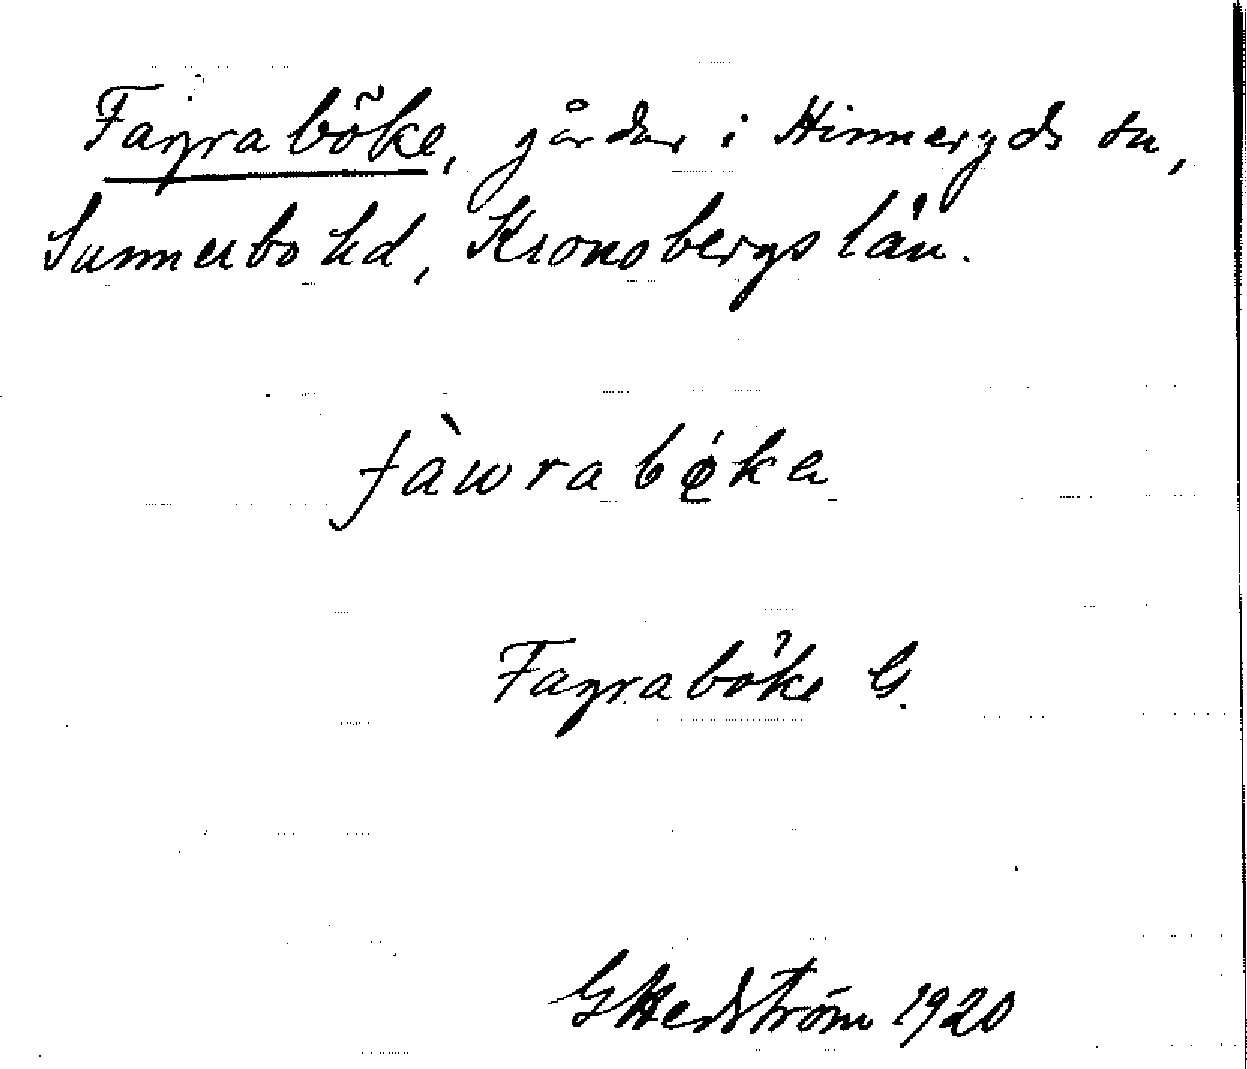 Fagraböke, gårdar i Hinneryds sn,
Sunnerbo hd, Kronobergs län.
fàwrabǿka
Fagraböke G.
G Hedström 1920